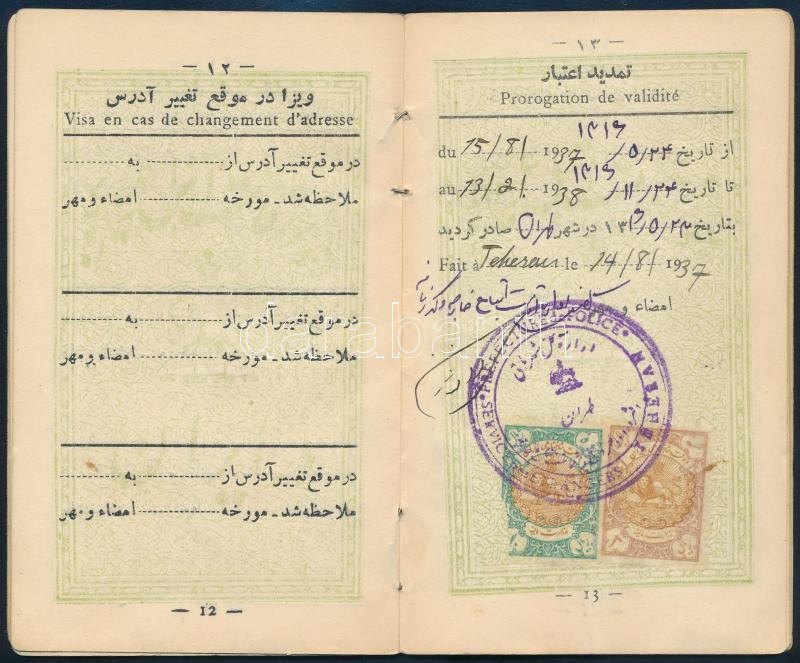 — ۱۲ —
ویزا در موقع تغییر آدرس
Visa en cas de changement d'adresse
در موقع تغییر آدرس از ............ به ............
ملاحظه شد ـ مورخه ............ امضاء و مهر
در موقع تغییر آدرس از ............ به ............
ملاحظه شد ـ مورخه ............ امضاء و مهر
در موقع تغییر آدرس از ............ به ............
ملاحظه شد ـ مورخه ............ امضاء و مهر
— 12 —
— ۱۳ —
تمدید اعتبار
Prorogation de validité
از تاریخ ۱۳۱۶/۵/۲۴
du 15/8/ 1937
تا تاریخ ۱۳۱۶/۱۱/۲۴
au 13/2/ 1938
بتاریخ ۱۳۱۶/۵/۲۳ در شهر طهران صادر گردید
Fait à Teheran le 14/8/ 1937
امضاء و
PREFECTURE POLICE
TEHERAN
طهران
— 13 —
darabanth